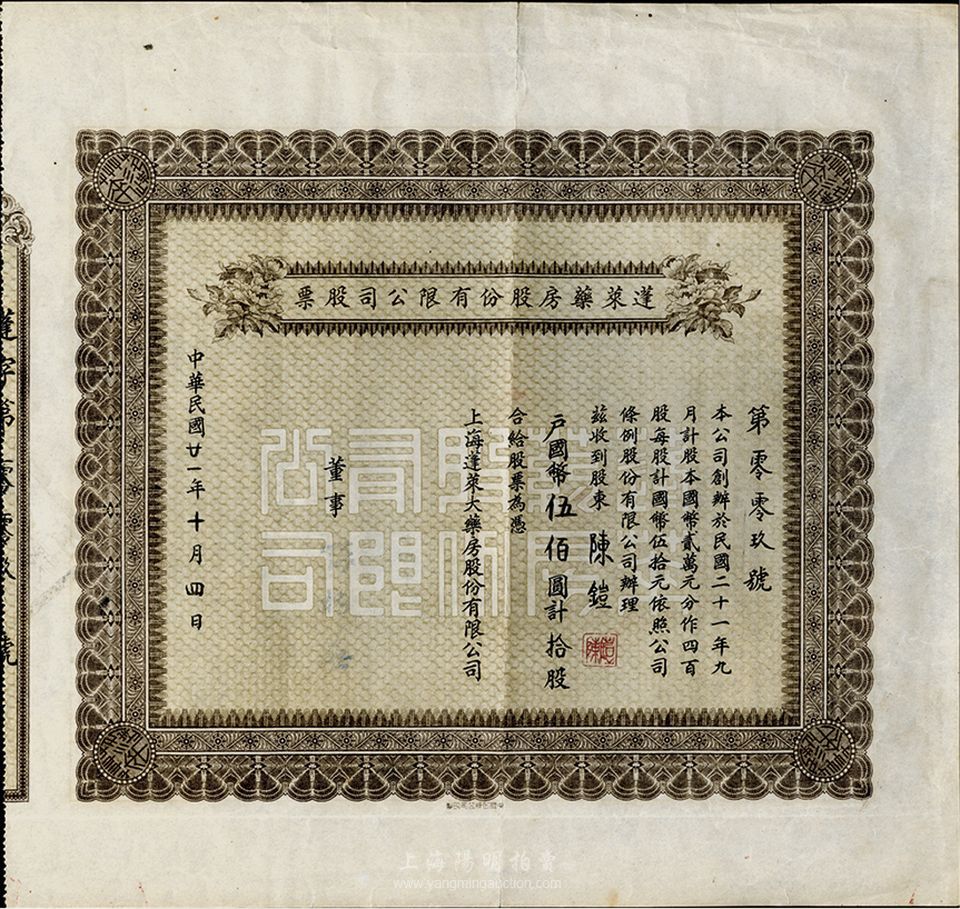 蓬萊藥房股份有限公司股票
第零零玖號
本公司創辦於民國二十一年九
月計股本國幣貳萬元分作四百
股每股計國幣伍拾元依照公司
條例股份有限公司辦理
茲收到股東 陳鎧
戶國幣伍佰圓計拾股
合給股票為憑
上海蓬萊大藥房股份有限公司
董事
中華民國廿一年十月四日
上海陽明拍賣
www.yangmingauction.com